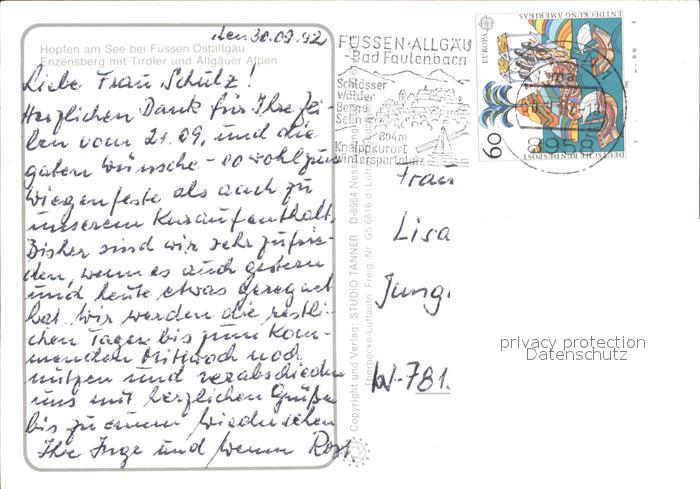 den 30.09.92
Hopfen am See bei Füssen/Ostallgäu
Enzensberg mit Tiroler und Allgäuer Alpen
Liebe Frau Schulz!
Herzlichen Dank für Ihre Zei-
len vom 21.09. und die
guten Wünsche - sowohl zum
Wiegenfeste als auch zu
unserem Kuraufenthalt.
Bisher sind wir sehr zufrie-
den, wenn es auch gestern
und heute etwas geregnet
hat. Wir werden die restli-
chen Tage bis zum kom-
menden Mittwoch noch
nutzen und verabschieden
uns mit herzlichen Grüßen
bis zu einem Wiedersehen
Ihre Inge und Rost.
FÜSSEN·ALLGÄU
Bad Faulenbach
Schlösser
Wälder
Berge
Seen
804m
Kneippkurort
Wintersportplatz
EUROPA
ENTDECKUNG AMERIKAS
60
DEUTSCHE BUNDESPOST
8958
Copyright und Verlag: STUDIO TANNER D-8964 Nesse
Thorbecke-Luftaufn. Freig. Nr. G5/6816 d. Luft
Frau
Lisa
Jung
W-781.
privacy protection
Datenschutz